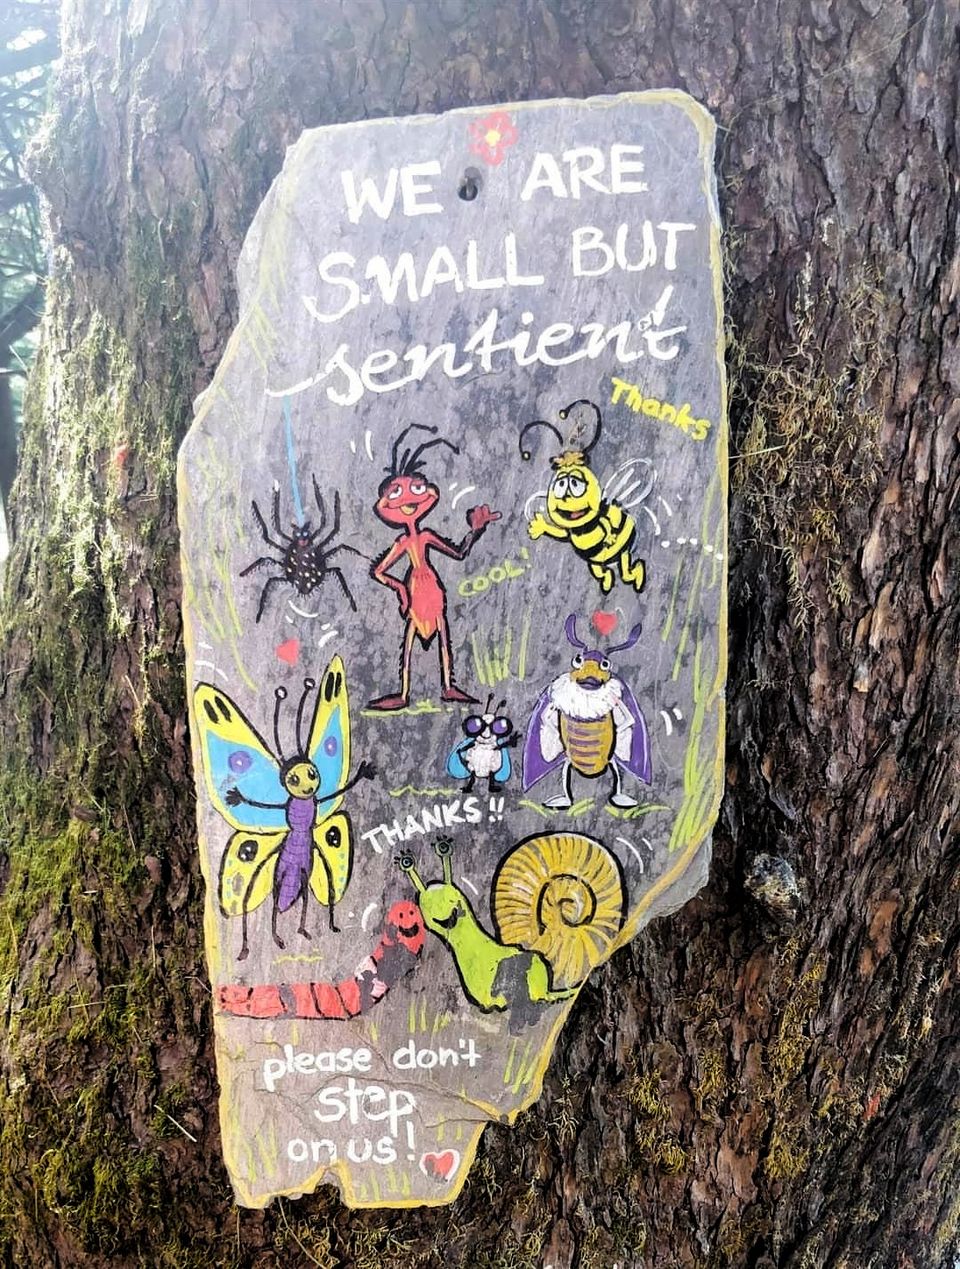 WE ARE
SMALL BUT
sentient!
Thanks
COOL!
THANKS!!
please don't
step
on us!